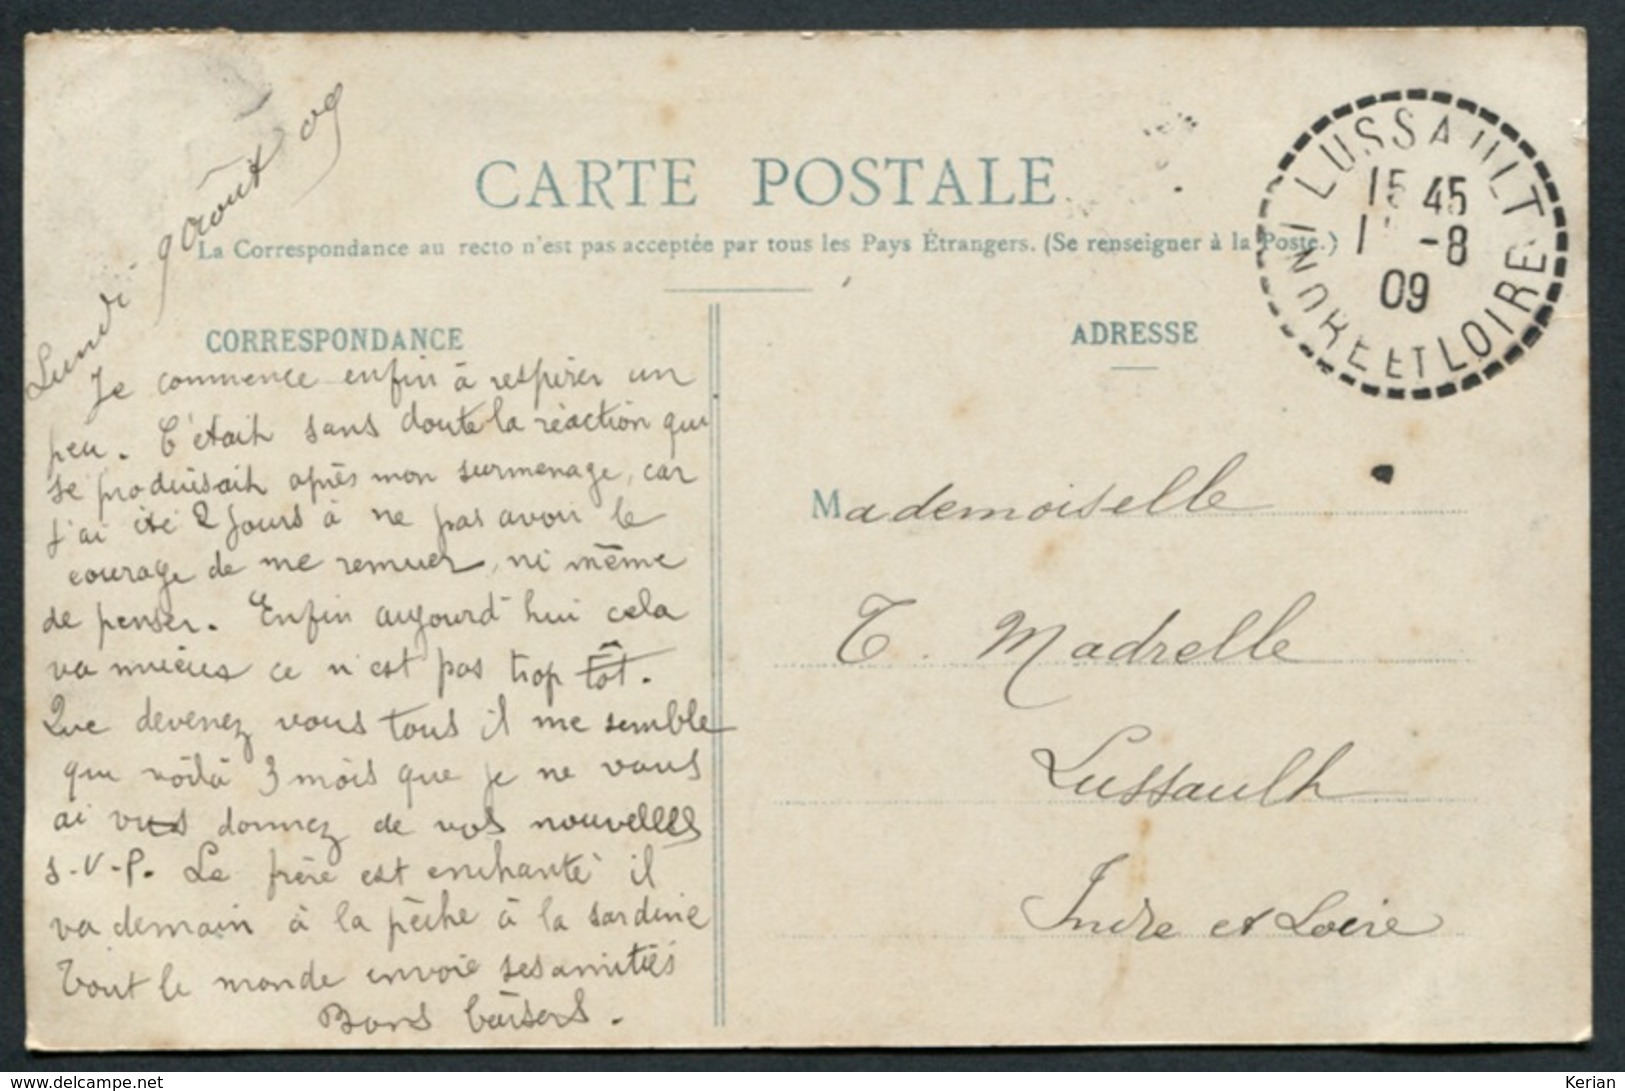 Lundi 9 août 09
CARTE POSTALE
La Correspondance au recto n'est pas acceptée par tous les Pays Étrangers. (Se renseigner à la Poste.)
LUSSAULT
INDRE ET LOIRE
15 45
-8
09
CORRESPONDANCE
Je commence enfin à respirer un
peu. C'était sans doute la réaction qui
se produisait après mon surmenage, car
j'ai été 2 jours à ne pas avoir le
courage de me remuer, ni même
de penser. Enfin aujourd'hui cela
va mieux ce n'est pas trop tôt.
Que devenez vous tous il me semble
qu voilà 3 mois que je ne vous
ai vus donnez de vos nouvelles
S-V-P. Le frère est enchanté il
va demain à la pêche à la sardine
Tout le monde envoie ses amitiés
Bons baisers.
ADRESSE
Mademoiselle
T. Madrelle
Lussault
Indre et Loire
delcampe.net
Kerian